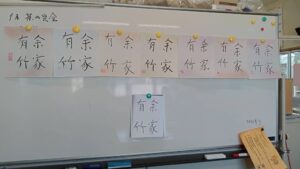 有余
竹家
有余
竹家
有余
竹家
有余
竹家
有余
竹家
有余
竹家
有余
竹家
有余
竹家